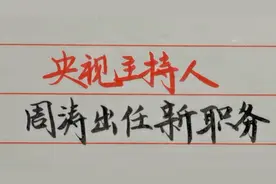 央视主持人
周涛出任新职务